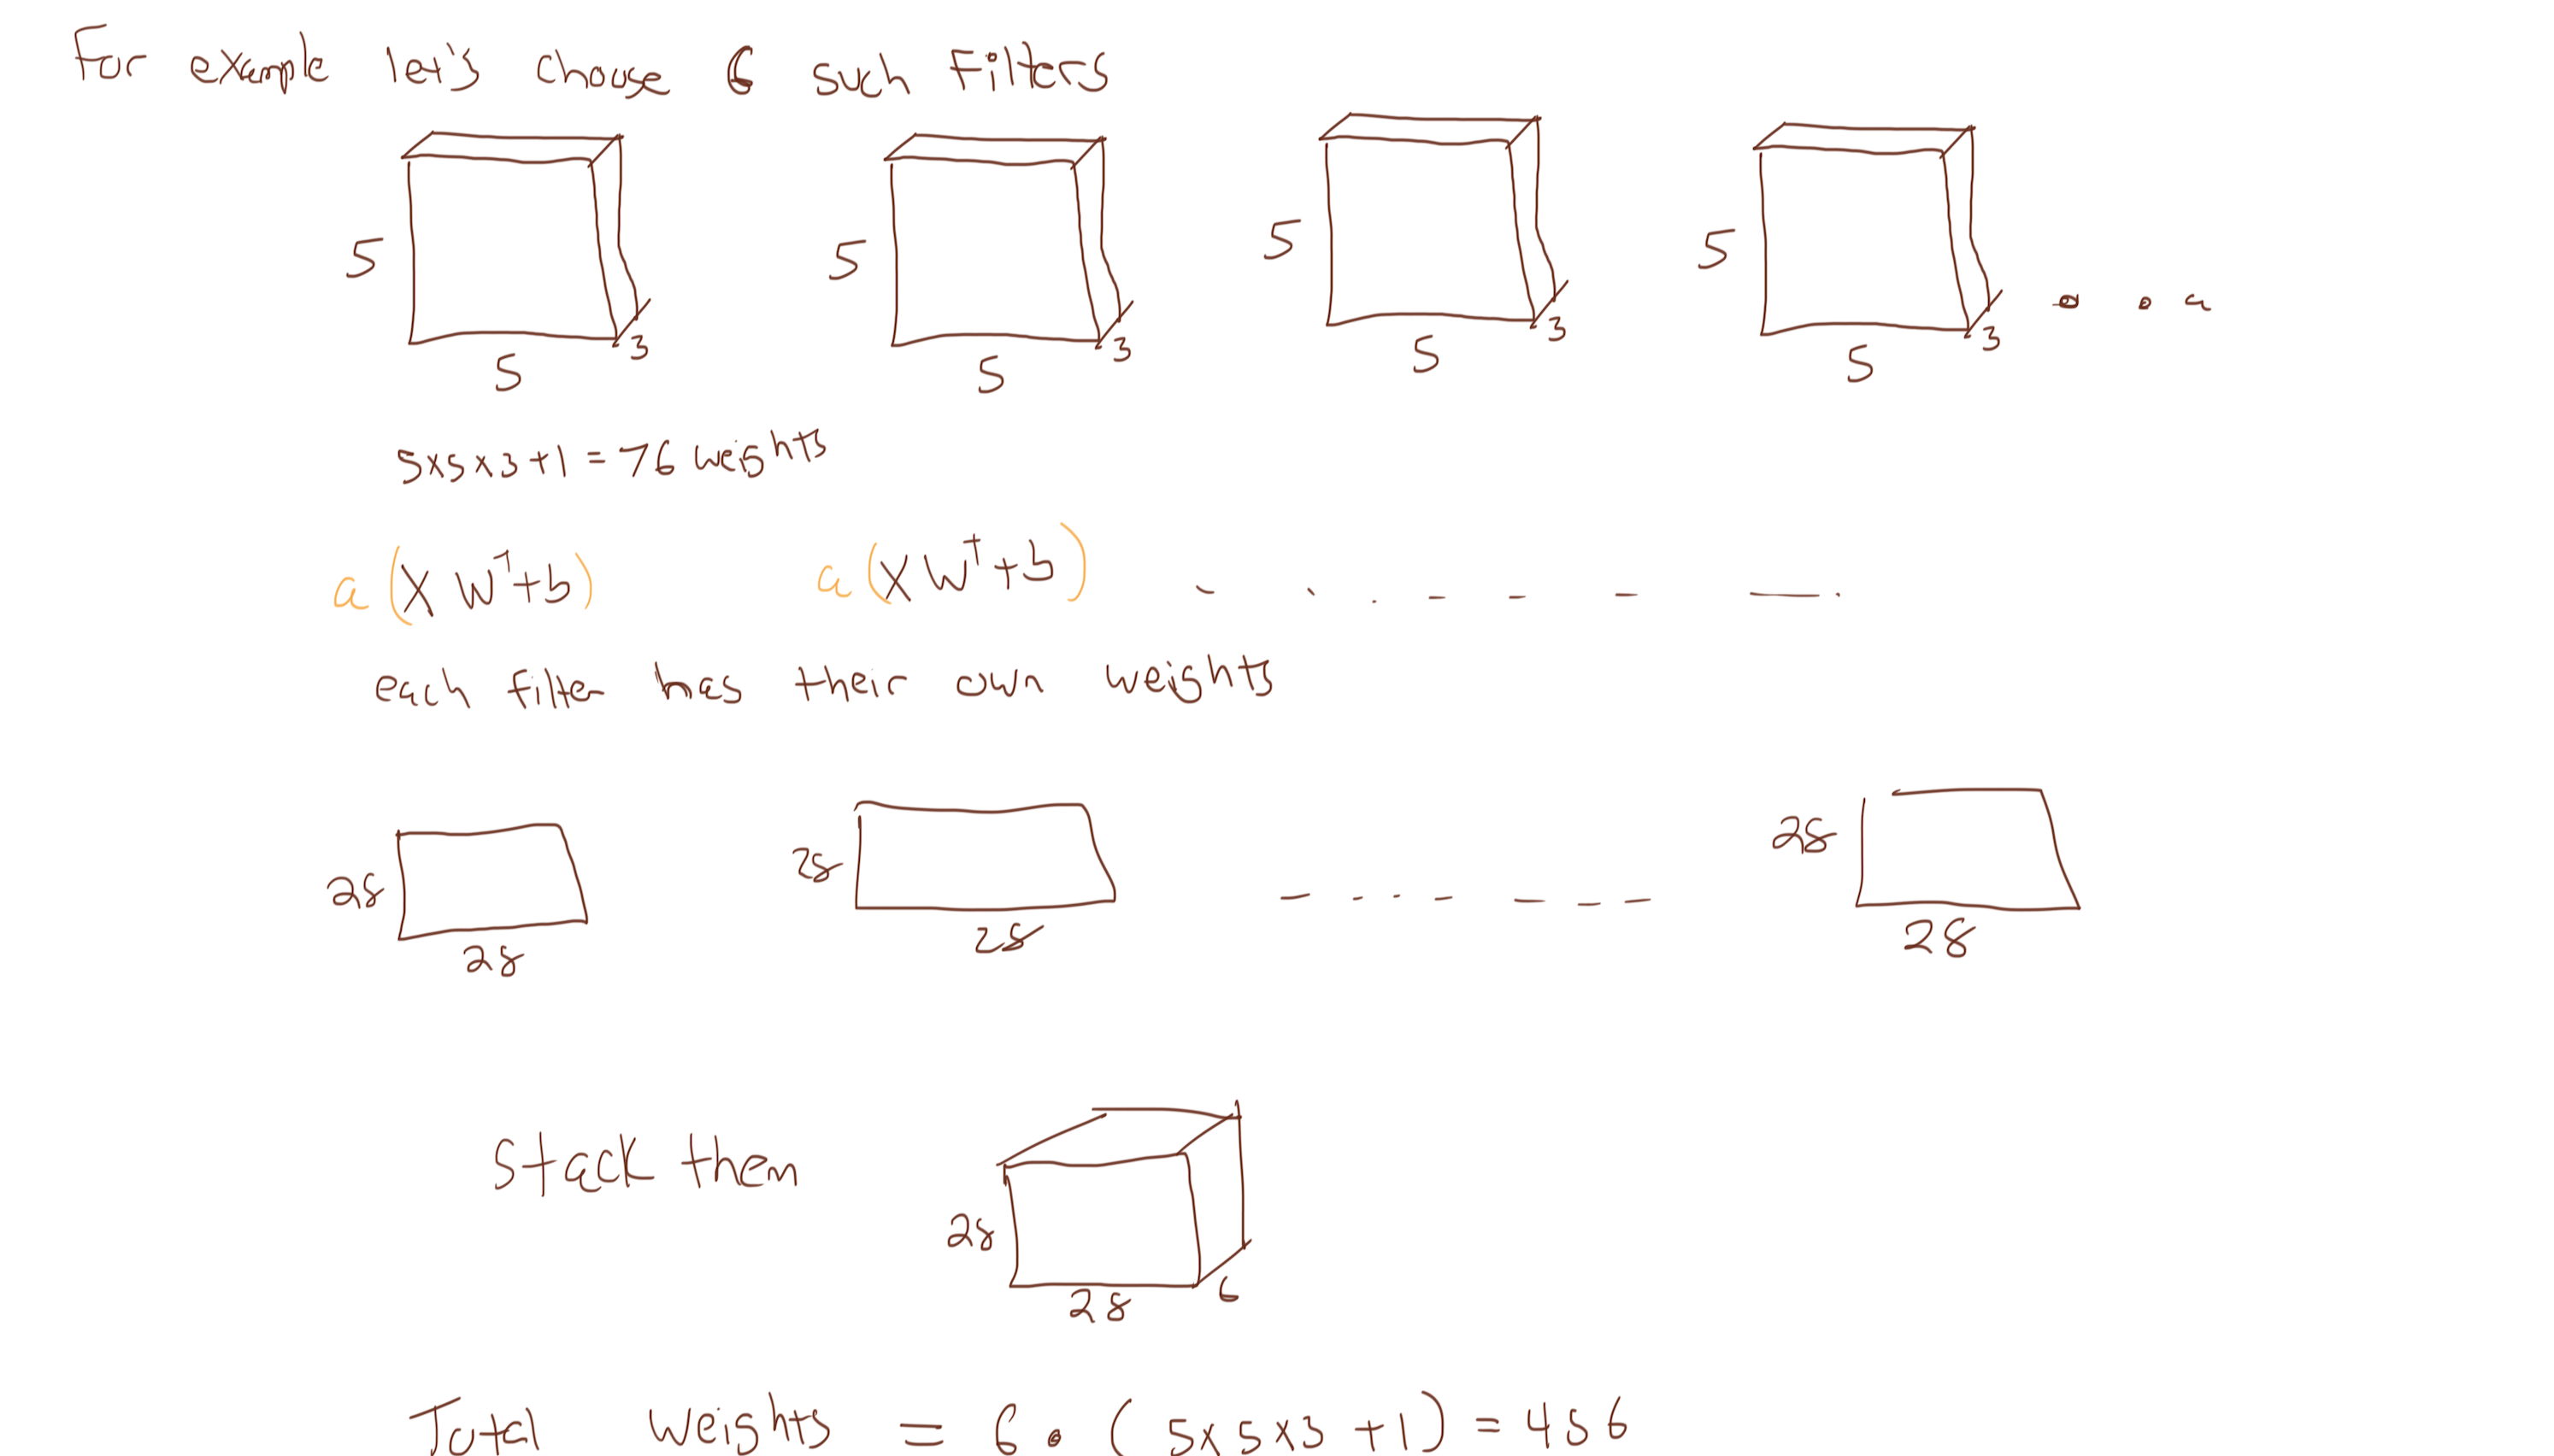 For example let's choose 6 such Filters
5 5 3 5 5 3 5 5 3 5 5 3
5x5x3+1 = 76 weights
a(XWᵀ+b) a(XWᵀ+b)
each filter has their own weights
28 28 28 28 28 28
Stack them
28 28 6
Total weights = 6 • (5x5x3 +1) = 456